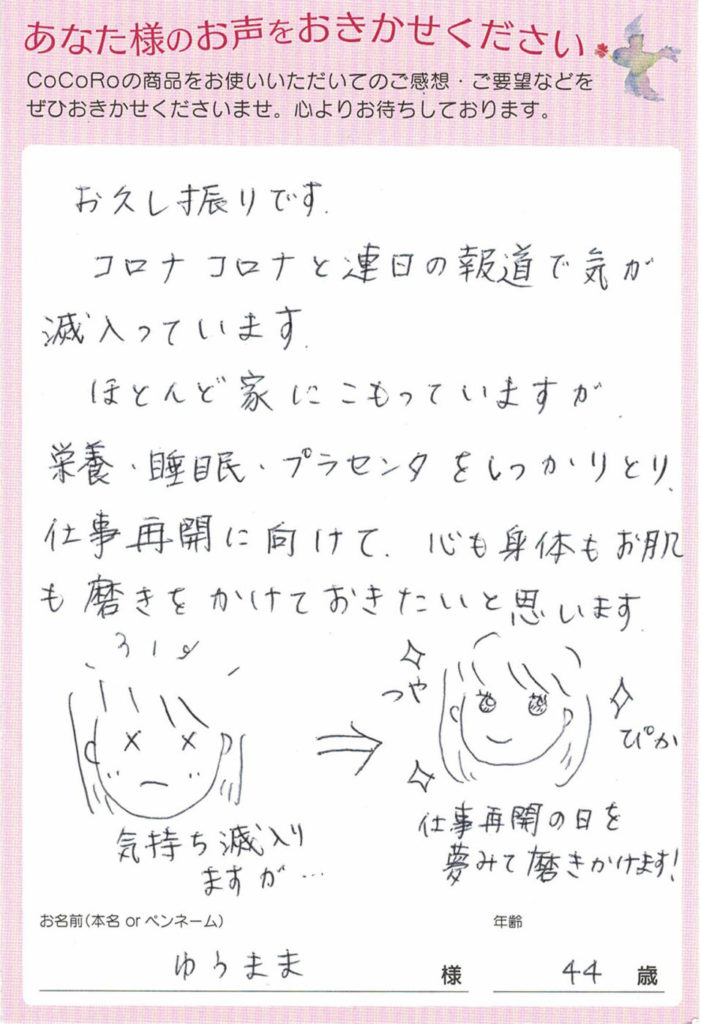 あなた様のお声をおきかせください
CoCoRoの商品をお使いいただいてのご感想・ご要望などを
ぜひおきかせくださいませ。心よりお待ちしております。
お久し振りです.
コロナ コロナと連日の報道で気が
滅入っています.
ほとんど家にこもっていますが.
栄養・睡眠・プラセンタをしっかりとり.
仕事再開に向けて. 心も身体もお肌
も磨きをかけておきたいと思います.
つや
ぴか
気持ち滅入り
ますが…
仕事再開の日を
夢みて磨きかけます!
お名前(本名 or ペンネーム)
年齢
ゆうまま 様
44 歳